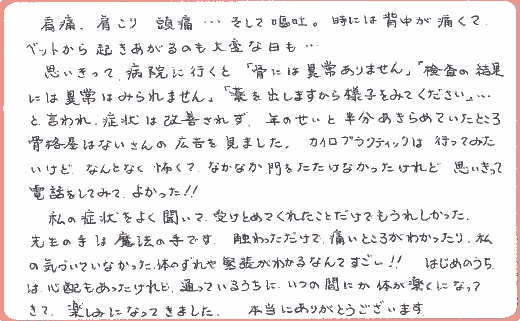 肩痛、肩こり 頭痛…そして嘔吐。時には背中が痛くて、
ベットから起きあがるのも大変な日も…
思いきって、病院に行くと「骨には異常ありません」「検査の結果
には異常はみられません」「薬を出しますから様子をみてください」…
と言われ、症状は改善されず、年のせいと半分あきらめていたところ
骨格屋はないさんの広告を見ました。カイロプラクティックは行ってみた
いけど、なんとなく怖くて、なかなか門をたたけなかったけれど 思いきって
電話をしてみて、よかった!!
私の症状をよく聞いて、受けとめてくれたことだけでもうれしかった。
先生の手は魔法の手です。触わっただけで、痛いところがわかったり、私
の気づいていなかった体のずれや緊張がわかるなんてすごい!! はじめのうち
は心配もあったけれど、通っているうちに、いつの間にか体が楽になって
きて、楽しみになってきました。 本当にありがとうございます。